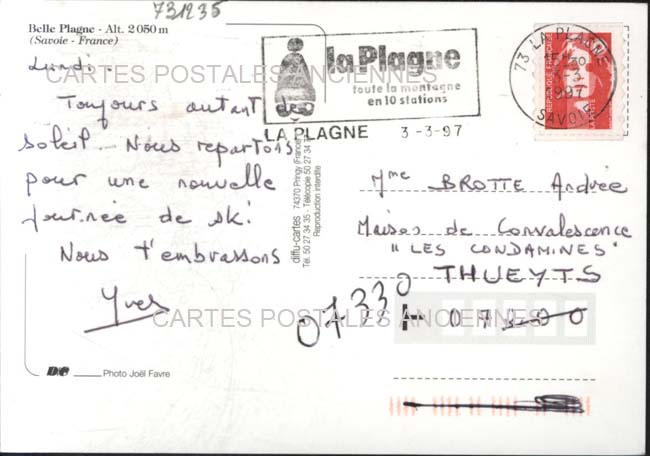 731235
Belle Plagne - Alt. 2 050 m
(Savoie - France)
Lundi.
Toujours autant de
soleil. Nous repartons
pour une nouvelle
journée de ski
Nous t'embrassons
Yves
CARTES POSTALES ANCIENNES
CARTES POSTALES ANCIENNES
DC Photo Joël Favre
diffu-cartes 74370 Pringy (France)
Tél. 50 27 34 35 - Télécopie 50 27 34
Reproduction interdite
la Plagne
toute la montagne
en 10 stations
LA PLAGNE 3-3-97
73 LA PLAGNE
1997
SAVOIE
REPUBLIQUE FRANÇAISE
LA POSTE
Mme BROTTE Andrée
Maison de Convalescence
"LES CONDAMINES"
THUEYTS
07330